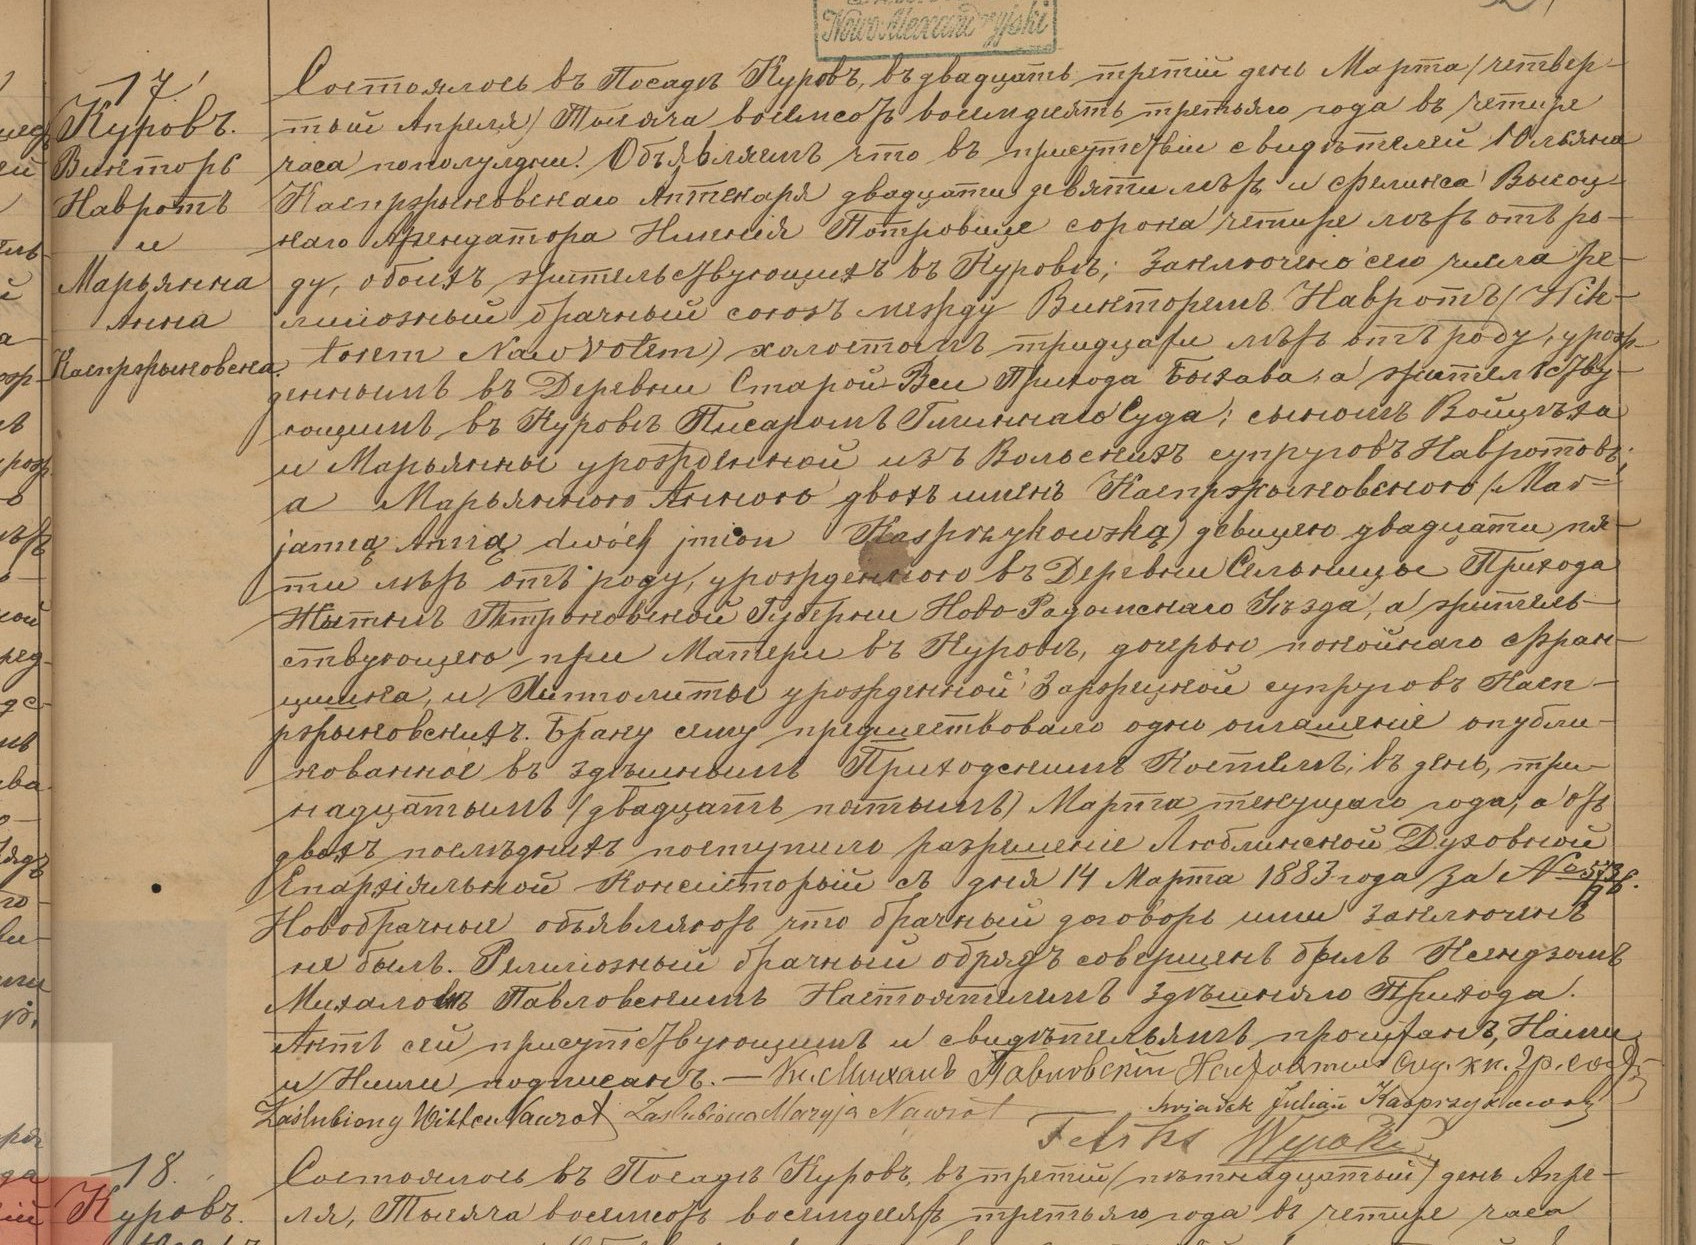 Nowo-Alexandryjski
17.
Куровъ.
Викторъ
Навротъ
и
Марьянна
Анна
Каспржыковска.
Состоялось въ Посадѣ Куровѣ, въ двадцать третій день Марта /четвер-
тый Апреля/ Тысяча восемсотъ восемдесятъ третьяго года въ четыре
часа пополудни. Объявляемъ что въ присутствіи свидѣтелей Юльяна
Каспржыковскаго Аптекаря двадцати девяти лѣтъ и Феликса Высоц-
каго Арендатора Имѣнія сорока четыре лѣтъ отъ ро-
ду, обоихъ жительствующихъ въ Куровѣ; заключено сего числа Ре-
лигіозный брачный союзъ между Викторемъ Навротъ /Wik-
torem Nawrotem) холостымъ тридцати лѣтъ отъ роду, урож-
деннымъ въ Деревни Старой Вси Прихода Быхава, а жительству-
ющимъ въ Куровѣ Писаромъ Гминнаго Суда; сыномъ Войцѣха
и Марьянны урожденной изъ Вольскихъ супруговъ Навротовъ;
а Марьянною Анною двохъ именъ Каспржыковскою /Mar-
janną Anną dwóch jmion Kasprzykowską) девицею двадцати пя-
ти лѣтъ отъ роду, урожденною въ Деревни Сельницы Прихода
Жытнѣ Петроковской Губерни Ново-Радомскаго Уѣзда, а житель-
ствующею при Матери въ Куровѣ, дочерью покойнаго Фран-
цишка, и Ипполиты урожденной Заржецкой супруговъ Касп-
ржыковскихъ. Браку сему предшествовало одно оглашеніе опубли-
кованное въ здѣшнымъ Приходскимъ Костелѣ, въ день, три-
надцатымъ (двадцать пятымъ) Марта текущаго года, а отъ
двохъ послѣднихъ поступило разрешеніе Люблинской Духовной
Епархіяльной Консисторый съ дня 14 Марта 1883 года за №
Новобрачные объявляютъ что брачный договоръ ими заключенъ
не былъ. Религіозный брачный обрядъ совершенъ былъ Ксендзомъ
Михаломъ Павловскимъ Настоятелемъ здѣшняго Прихода.
Актъ сей присутствующимъ и свидѣтельямъ прочитанъ, Нами
и Ними подписанъ. — Кс. Михалъ Павловскій Настоятель
Zaślubiony Wiktor Nawrot Zaślubiona Maryja Nawrot Świadek Julian Kasprzykowski
Feliks Wysocki
18.
Куровъ.
Состоялось въ Посадѣ Куровѣ, въ третій /пятнадцатый/ день Апре-
ля, Тысяча восемсотъ восемдесятъ третьяго года въ четыре часа